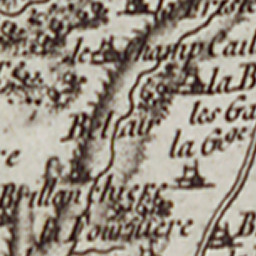 le Champ Cail
la B
les Ga
Bel air
la G.ge
re
Brillanchiere
la Fourniere
B